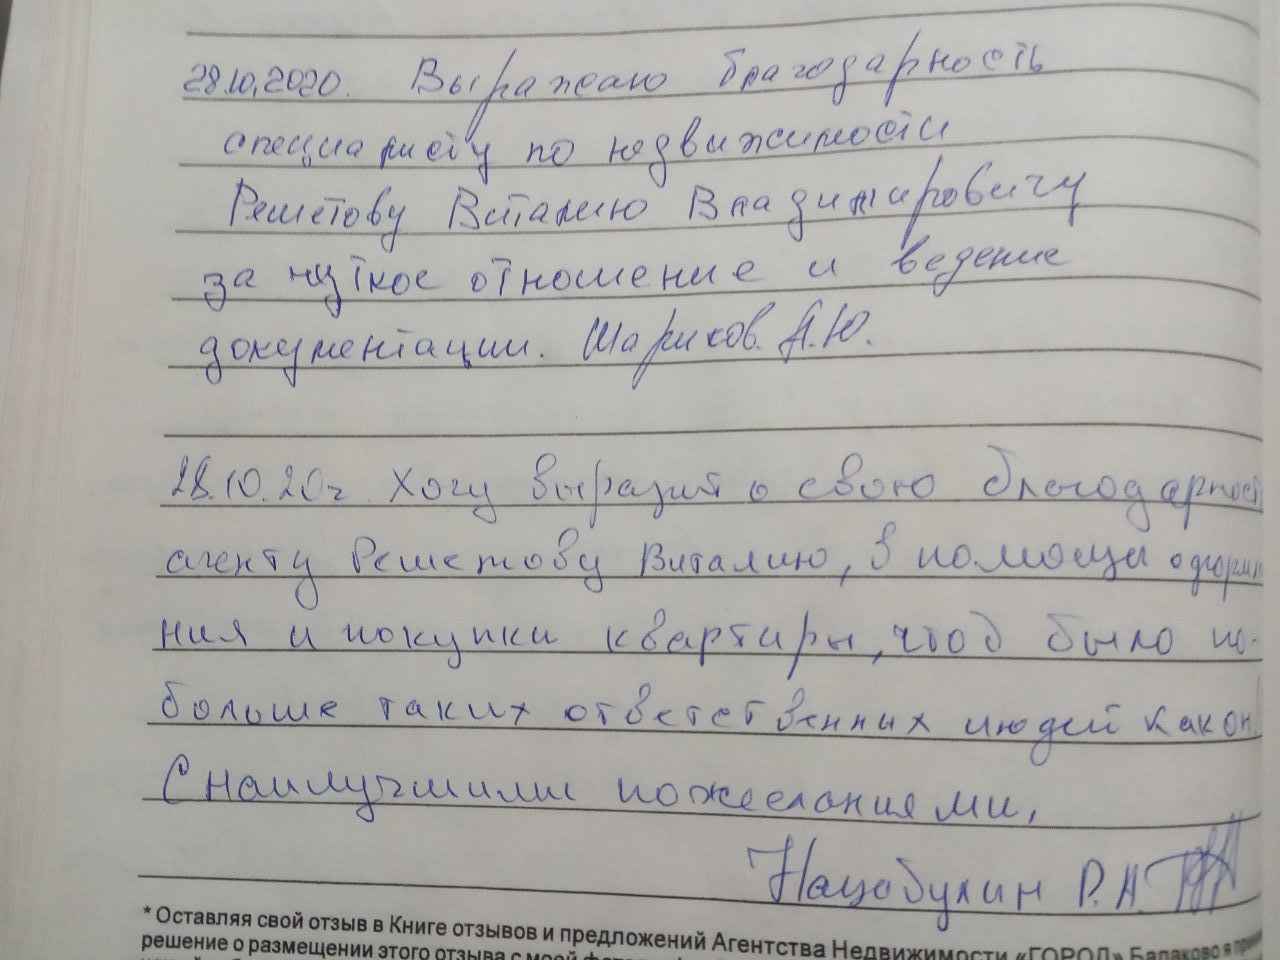 28.10.2020. Выражаю благодарность
специалисту по недвижимости
Решетову Виталию Владимировичу
за чуткое отношение и ведение
документации. Шариков. А.Ю.
28.10.20г. Хочу выразить свою благодарност
агенту Решетову Виталию, в помощи оформл
ния и покупки квартиры, чтоб было по-
больше таких ответственных людей как он.
С наилучшими пожеланиями,
Р.А.
* Оставляя свой отзыв в Книге отзывов и предложений Агентства Недвижимости «ГОРОД» Балаково я
решение о размещении этого отзыва с моей